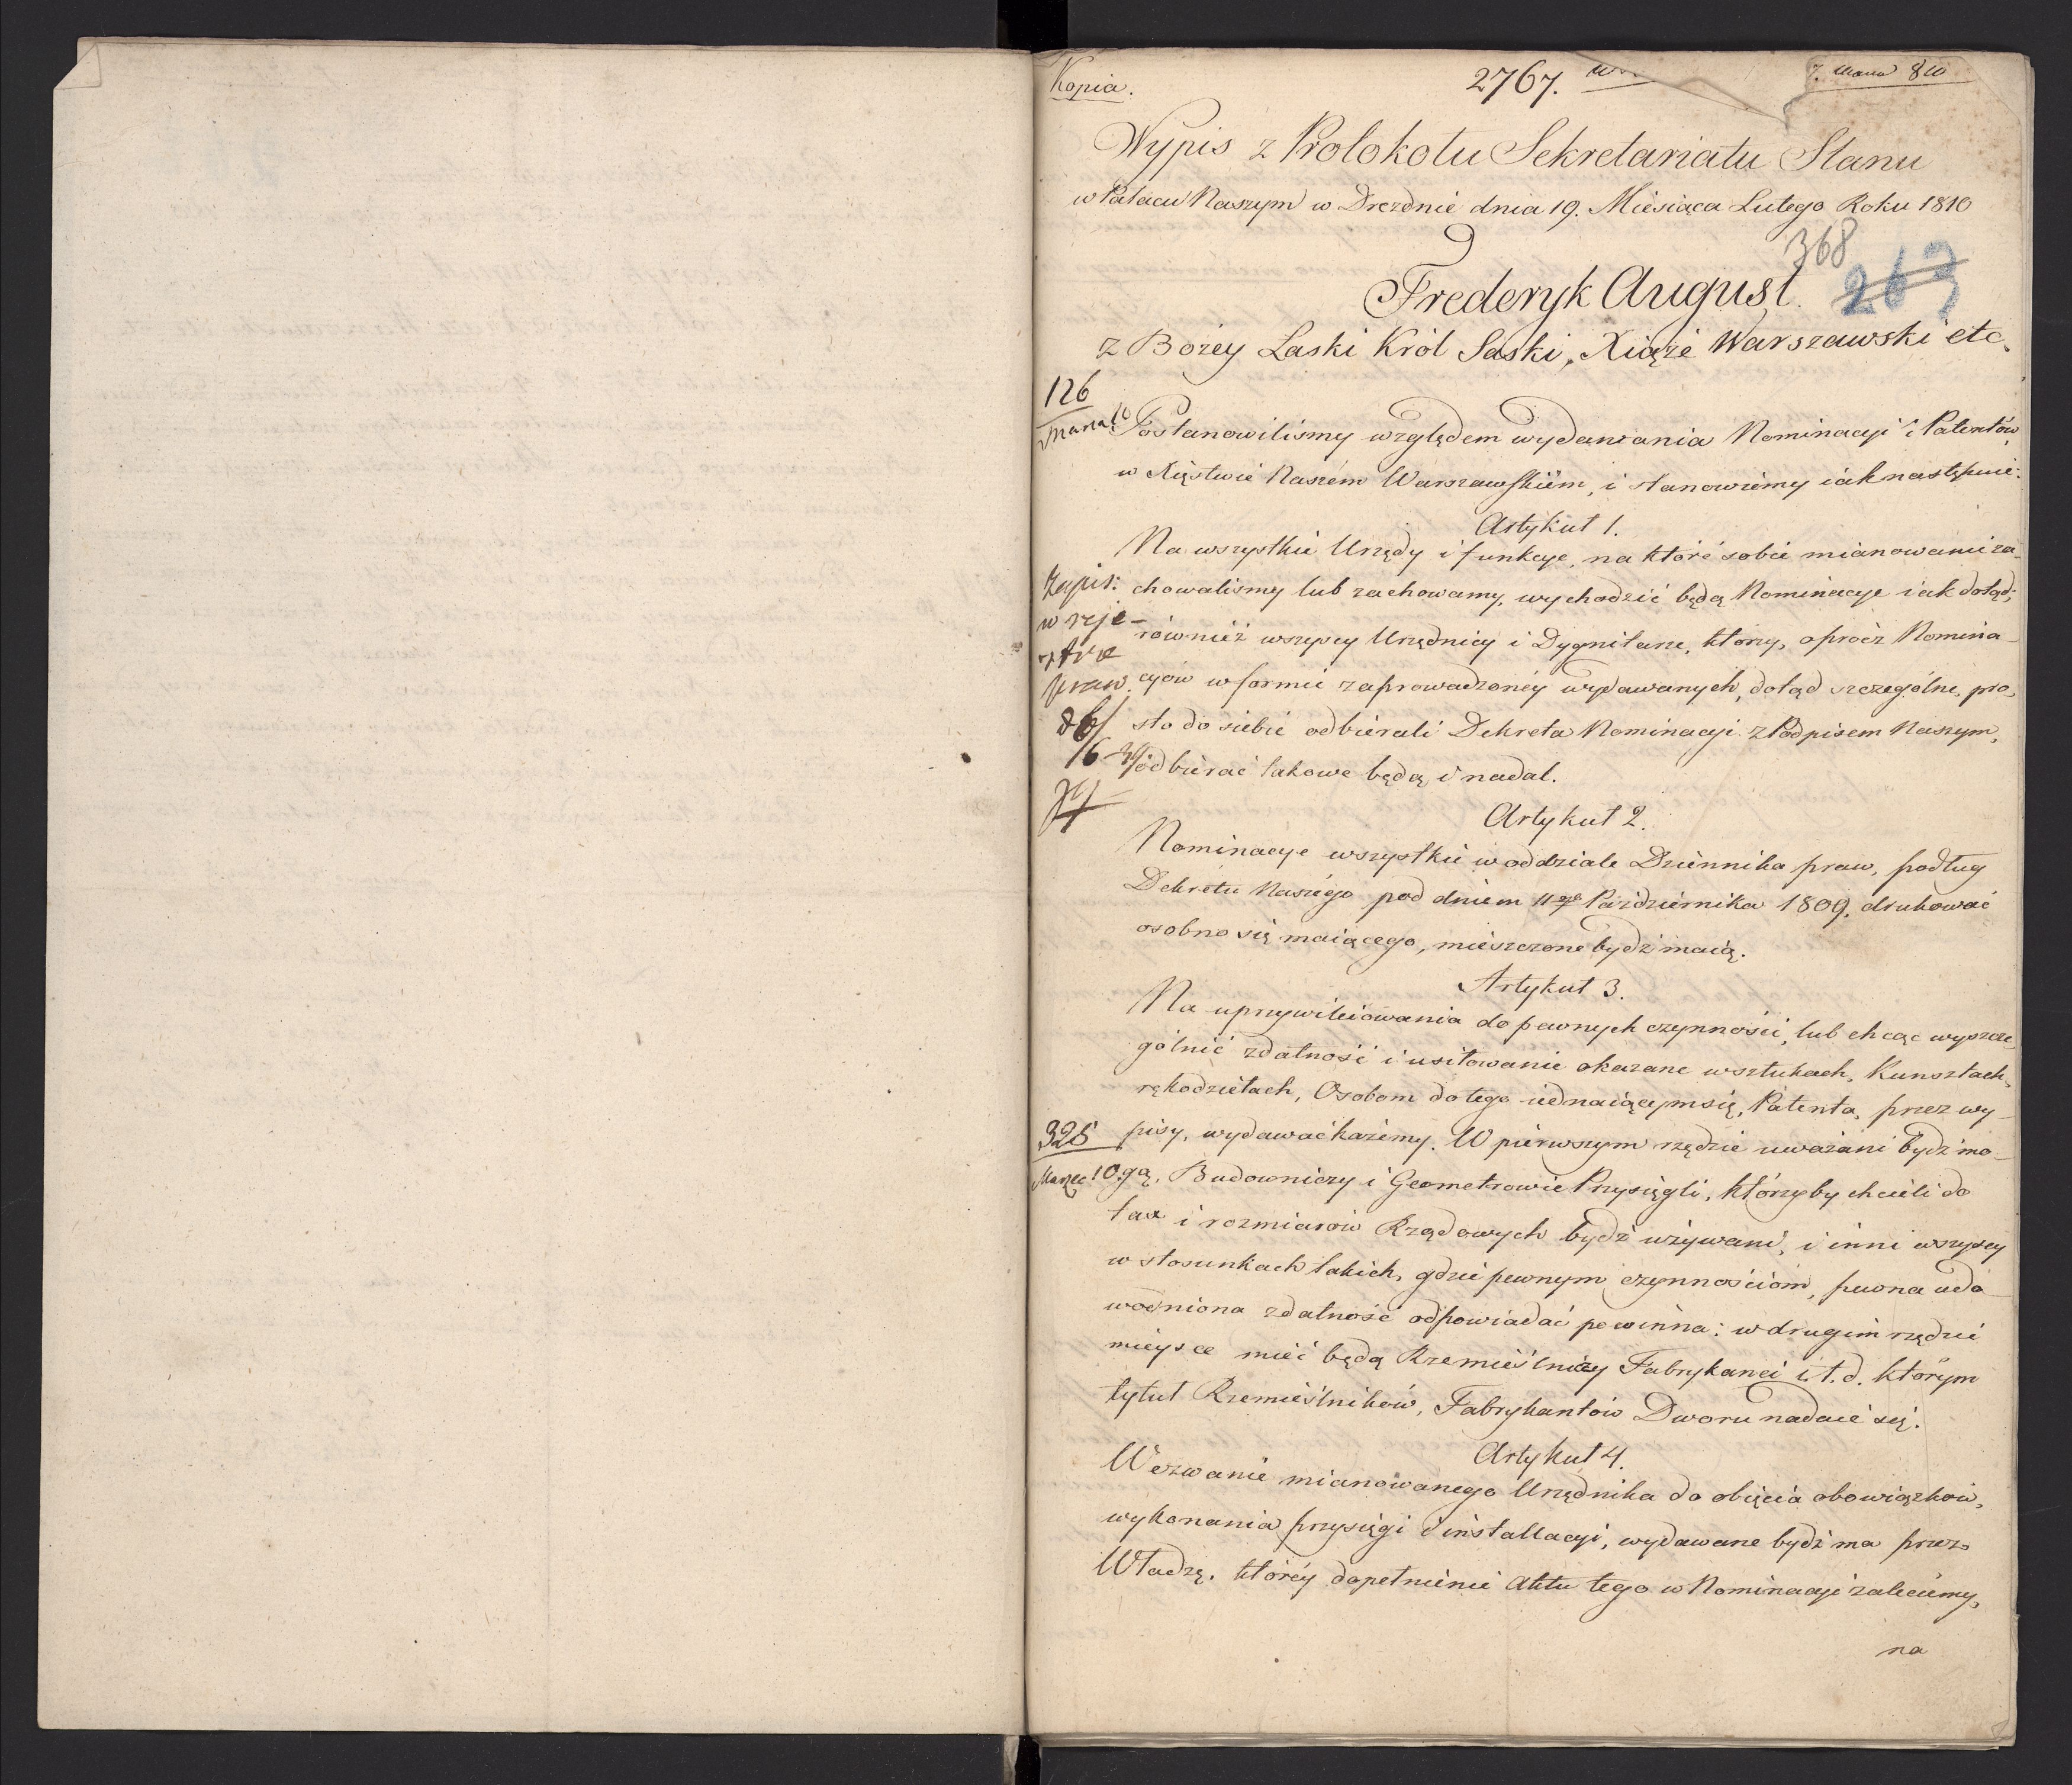 Kopia.
2767.
7. Marca 810
Wypis z Protokołu Sekretariatu Stanu
w Pałacu Naszym w Dreznie dnia 19. Miesiąca Lutego Roku 1810
368
263
Frederyk August
z Bożey Łaski Król Saski, Xiąże Warszawski etc.
126
Marca 10
Postanowiliśmy względem wydawania Nominacyi i Patentów
w Xięstwie Naszém Warszawskiém, i stanowiemy iak następuie:
Artykuł 1.
Na wszystkie Urzędy i funkcye, na które sobie mianowanie za-
chowaliśmy lub zachowamy, wychodzić będą Nominacye iak dotąd;
również wszyscy Urzędnicy i Dygnitarze, którzy, oprócz Nomina-
cyów w formie zaprowadzonéy wydawanych, dotąd szczególne, pro-
sto do siebie odbierali Dekreta Nominacyi z Podpisem Naszym,
odbierać takowe będą i nadal.
Zapis:
w reje-
strze
praw.
Artykuł 2.
Nominacye wszystkie w oddziale Dziennika praw, podług
Dekretu Naszego pod dniem 11go Października 1809. drukować
osobno się maiącego, mieszczone bydź maią.
Artykuł 3.
Na uprzywileiowania do pewnych czynności, lub chcąc wyszcze-
gólnić zdatność i usiłowanie okazane w sztukach, Kunsztach,
rękodziełach, Osobom do tego iednaiącym się, Patenta, przez wy-
pisy, wydawać każemy. W pierwszym rzędzie uważani bydź mo-
gą, Budowniczy i Geometrowie Przysięgli, którzyby chcieli do
tax i rozmiarów Rządowych bydź używani, i inni wszyscy
w stosunkach takich, gdzie pewnym czynnościom, pewna udo-
wodniona zdatność odpowiadać powinna: w drugim rzędzie
mieysce mieć będą Rzemieślnicy Fabrykanci i t.d. którym
tytuł Rzemieślników, Fabrykantów Dworu nadaie się.
325
Marzec 10.
Artykuł 4.
Wezwanie mianowanego Urzędnika do obięcia obowiązków,
wykonania przysięgi i installacyi, wydawane bydź ma przez
Władzę, któréy dopełnienie aktu tego w Nominacyi zaleciemy,
na